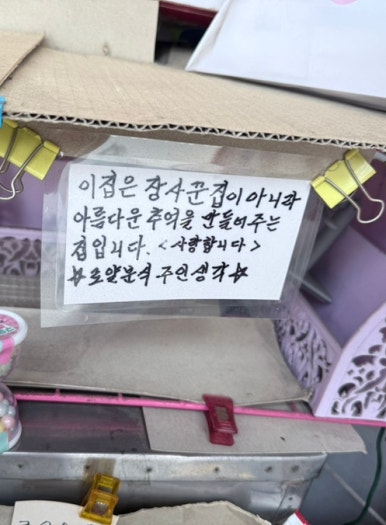 이집은 장사꾼집이아니라
아름다운 추억을 만들어주는
집입니다. <사랑합니다>
☆로얄분식 주인생각☆